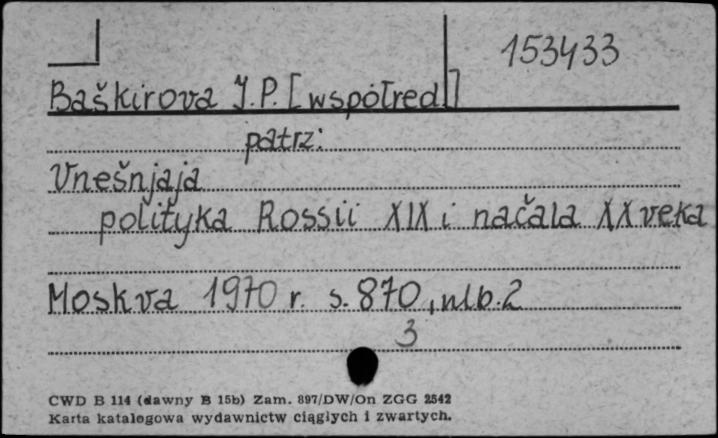 153433
Baškirova J.P. [współred.]
patrz:
Vnešnjaja
polityka Rossii XIX i načala XX veka
Moskva 1970 r. s. 870, nlb. 2
3
CWD B 114 (dawny B 15b) Zam. 897/DW/On ZGG 2542
Karta katalogowa wydawnictw ciągłych i zwartych.